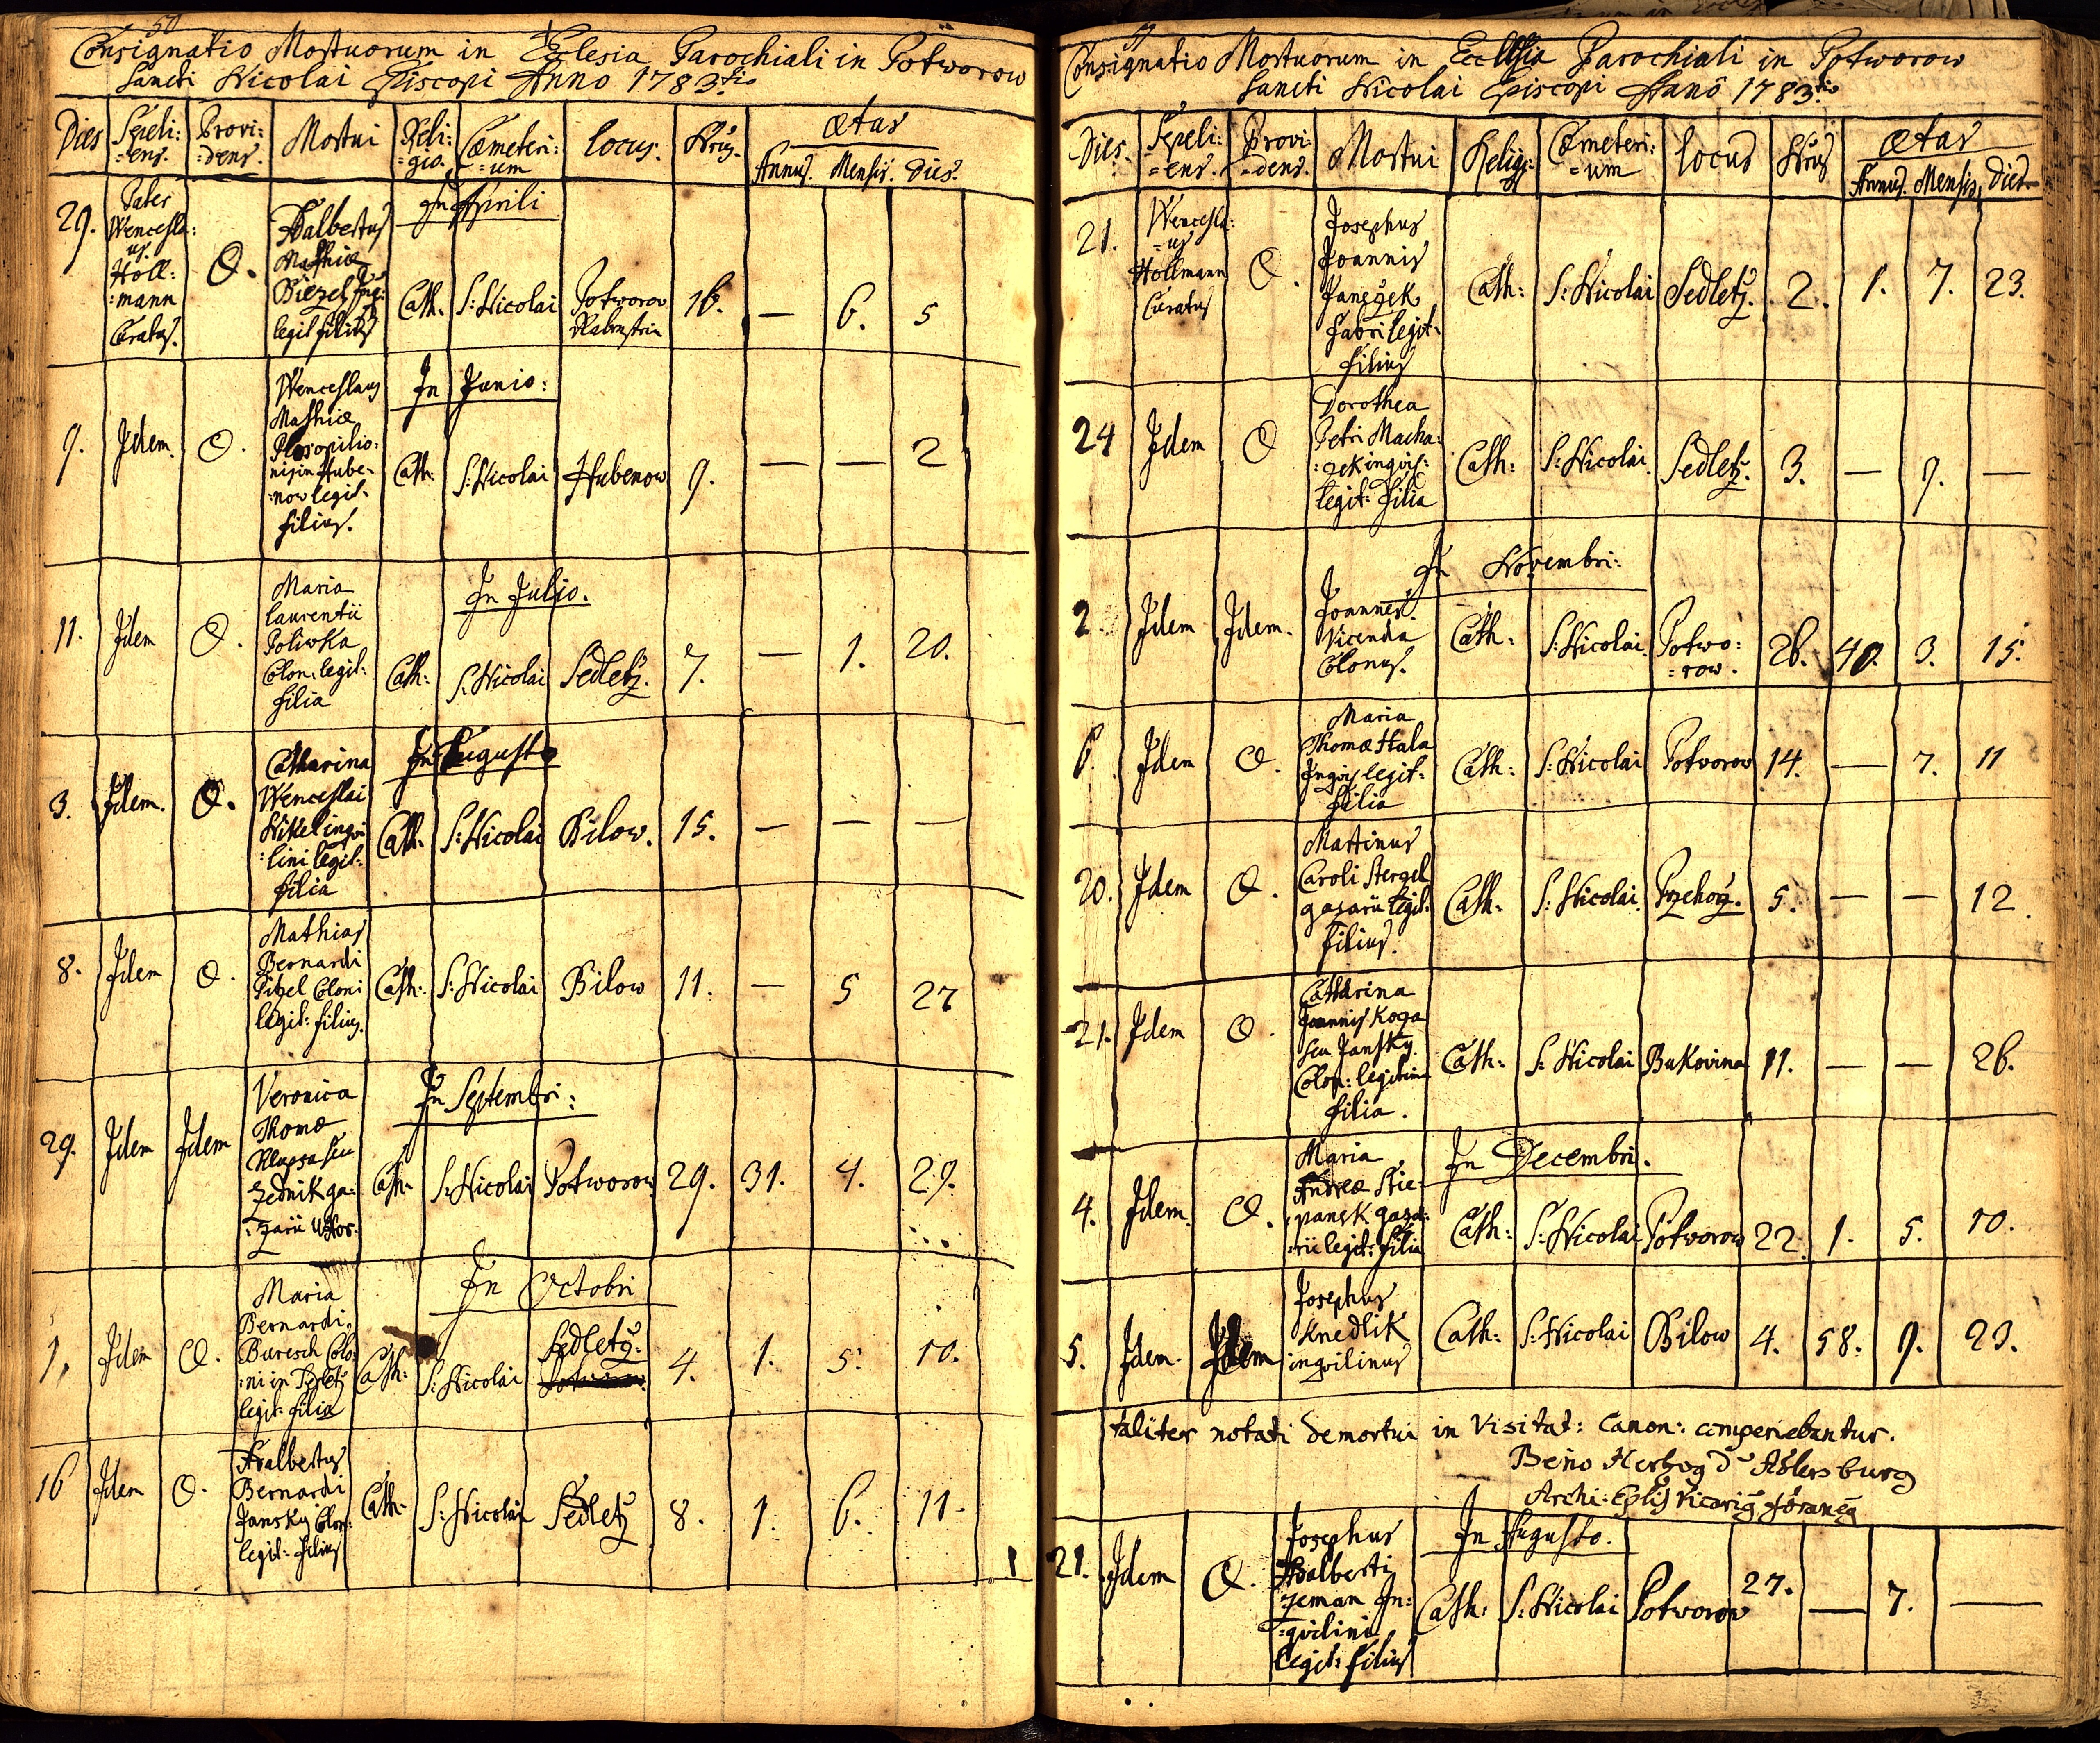 50
Consignatio Mortuorum in Ecclesia Parochiali in Potworow
Sancti Nicolai Episcopi Anno 1783tio
Dies Sepeli:=ens. Provi:=dens. Mortui Reli:=gio. Cœmeteri:=um locus. Nrus. Ætas
Annus. Mensis. Dies.
In Aprili
29. Pater Wencesla:us. Holl:=mann Curatus. O. Adalbertus Mathiæ legit filius Cath. S: Nicolai Potworov 16. — 6. 5
In Junio:
9. Idem. O. Wenceslaus Mathiæ opilio:nis in Hube-=now legit: filius. Cath: S: Nicolai Hubenow 9. — — 2
In Julio.
11. Idem O. Maria Laurentii Poliwka Colon: legit: filia Cath: S: Nicolai Sedletz. 7. — 1. 20.
In Augusto
3. Idem. O. Catharina Wenceslai Nikel inqvi:lini legit: filia Cath: S: Nicolai Bilow. 15. — — —
8. Idem O. Mathias Bernardi Pitzel Coloni legit: filius. Cath: S: Nicolai Bilow 11. — 5 27
In Septembri:
29. Idem Idem Veronica Thomæ seu Zednik ga:zarii Uxor. Cath: S: Nicolai Potworow 29. 31. 4. 29.
In Octobri
1, Idem O. Maria Bernardi Buresch Colo:ni in Sedletz legit: filia Cath: S: Nicolai Sedletz. 4. 1. 5. 10.
16 Idem O. Adalbertus Bernardi Jansky Colon: legit: filius Cath: S: Nicolai Sedletz 8. 1. 6. 11.
51
Consignatio Mortuorum in Ecclesia Parochiali in Potworow
Sancti Nicolai Episcopi Anno 1783tio
Dies. Sepeli:=ens. Provi:=dens. Mortui Relig: Cœmeteri:=um locus Nrus Ætas
Annus. Mensis, Dies
21. Wencesla:=us Hollmann Curatus O. Josephus Joannis Janeczek Fabri legit: filius Cath: S: Nicolai Sedletz. 2. 1. 7. 23.
24 Idem O Dorothea Petri Macha:czek inqvil: legit: Filia Cath: S: Nicolai. Sedletz. 3. — 9. —
In Novembri:
2. Idem Idem. Joannes Vicenda Colonus. Cath: S: Nicolai. Potwo:=row. 26. 40. 3. 15.
6. Idem O. Maria Thomæ Hala Inqvil legit: filia Cath: S: Nicolai Potworow 14. — 7. 11
20. Idem O. Martinus Caroli Stergel gazarii legit: filius. Cath: S: Nicolai. Przehorz. 5. — — 12.
21. Idem O. Catharina Joannis Koza seu Jansky Colon: legitima filia. Cath: S: Nicolai Bukovina 11. — — 26.
In Decembri.
4. Idem. O. Maria Andreæ Stie:panek gaza:rii legit: filia Cath: S: Nicolai Potworow 22. 1. 5. 10.
5. Idem. Idem Josephus Knedlik inqvilinus Cath: S: Nicolai Bilow 4. 58. 9. 23.
taliter notati demortui in Visitat: Canon: comperiebantur.
Beno Herzog d' Adlersburg
Archi: Eplis Vicarig foraneg
In Augusto.
21. Idem O. Josephus Adalberti Zeman In:=qvilini legit: filius Cath: S: Nicolai Potworow 27. — 7. —